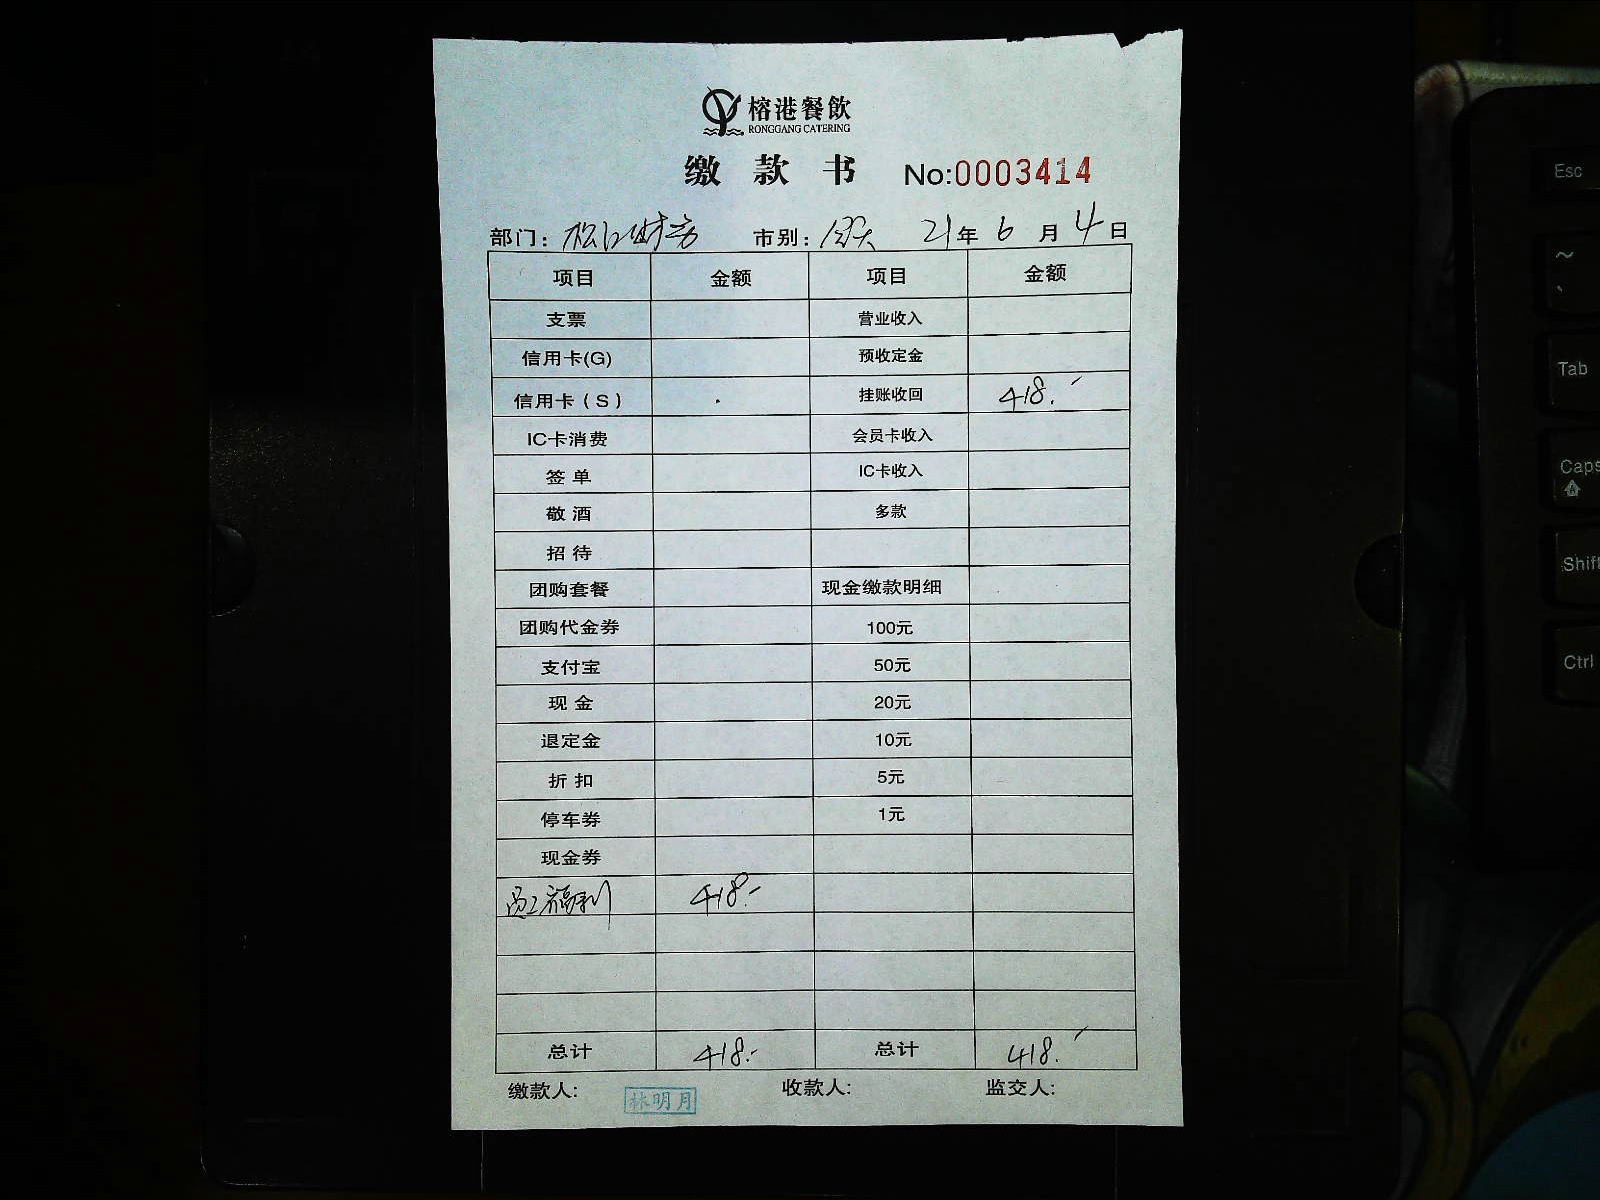 榕港餐飲
RONGGANG CATERING
缴款书 No:0003414
部门: 松江财务 市别: 全天 21年6月4日
项目 金额 项目 金额
支票 营业收入
信用卡(G) 预收定金
信用卡(S) 挂账收回 418.-
IC卡消费 会员卡收入
签单 IC卡收入
敬酒 多款
招待
团购套餐 现金缴款明细
团购代金券 100元
支付宝 50元
现金 20元
退定金 10元
折扣 5元
停车券 1元
现金券
员工福利 418.-
总计 418.- 总计 418.-
缴款人: 林明月 收款人: 监交人:
Esc
~
、
Tab
Caps
Shift
Ctrl